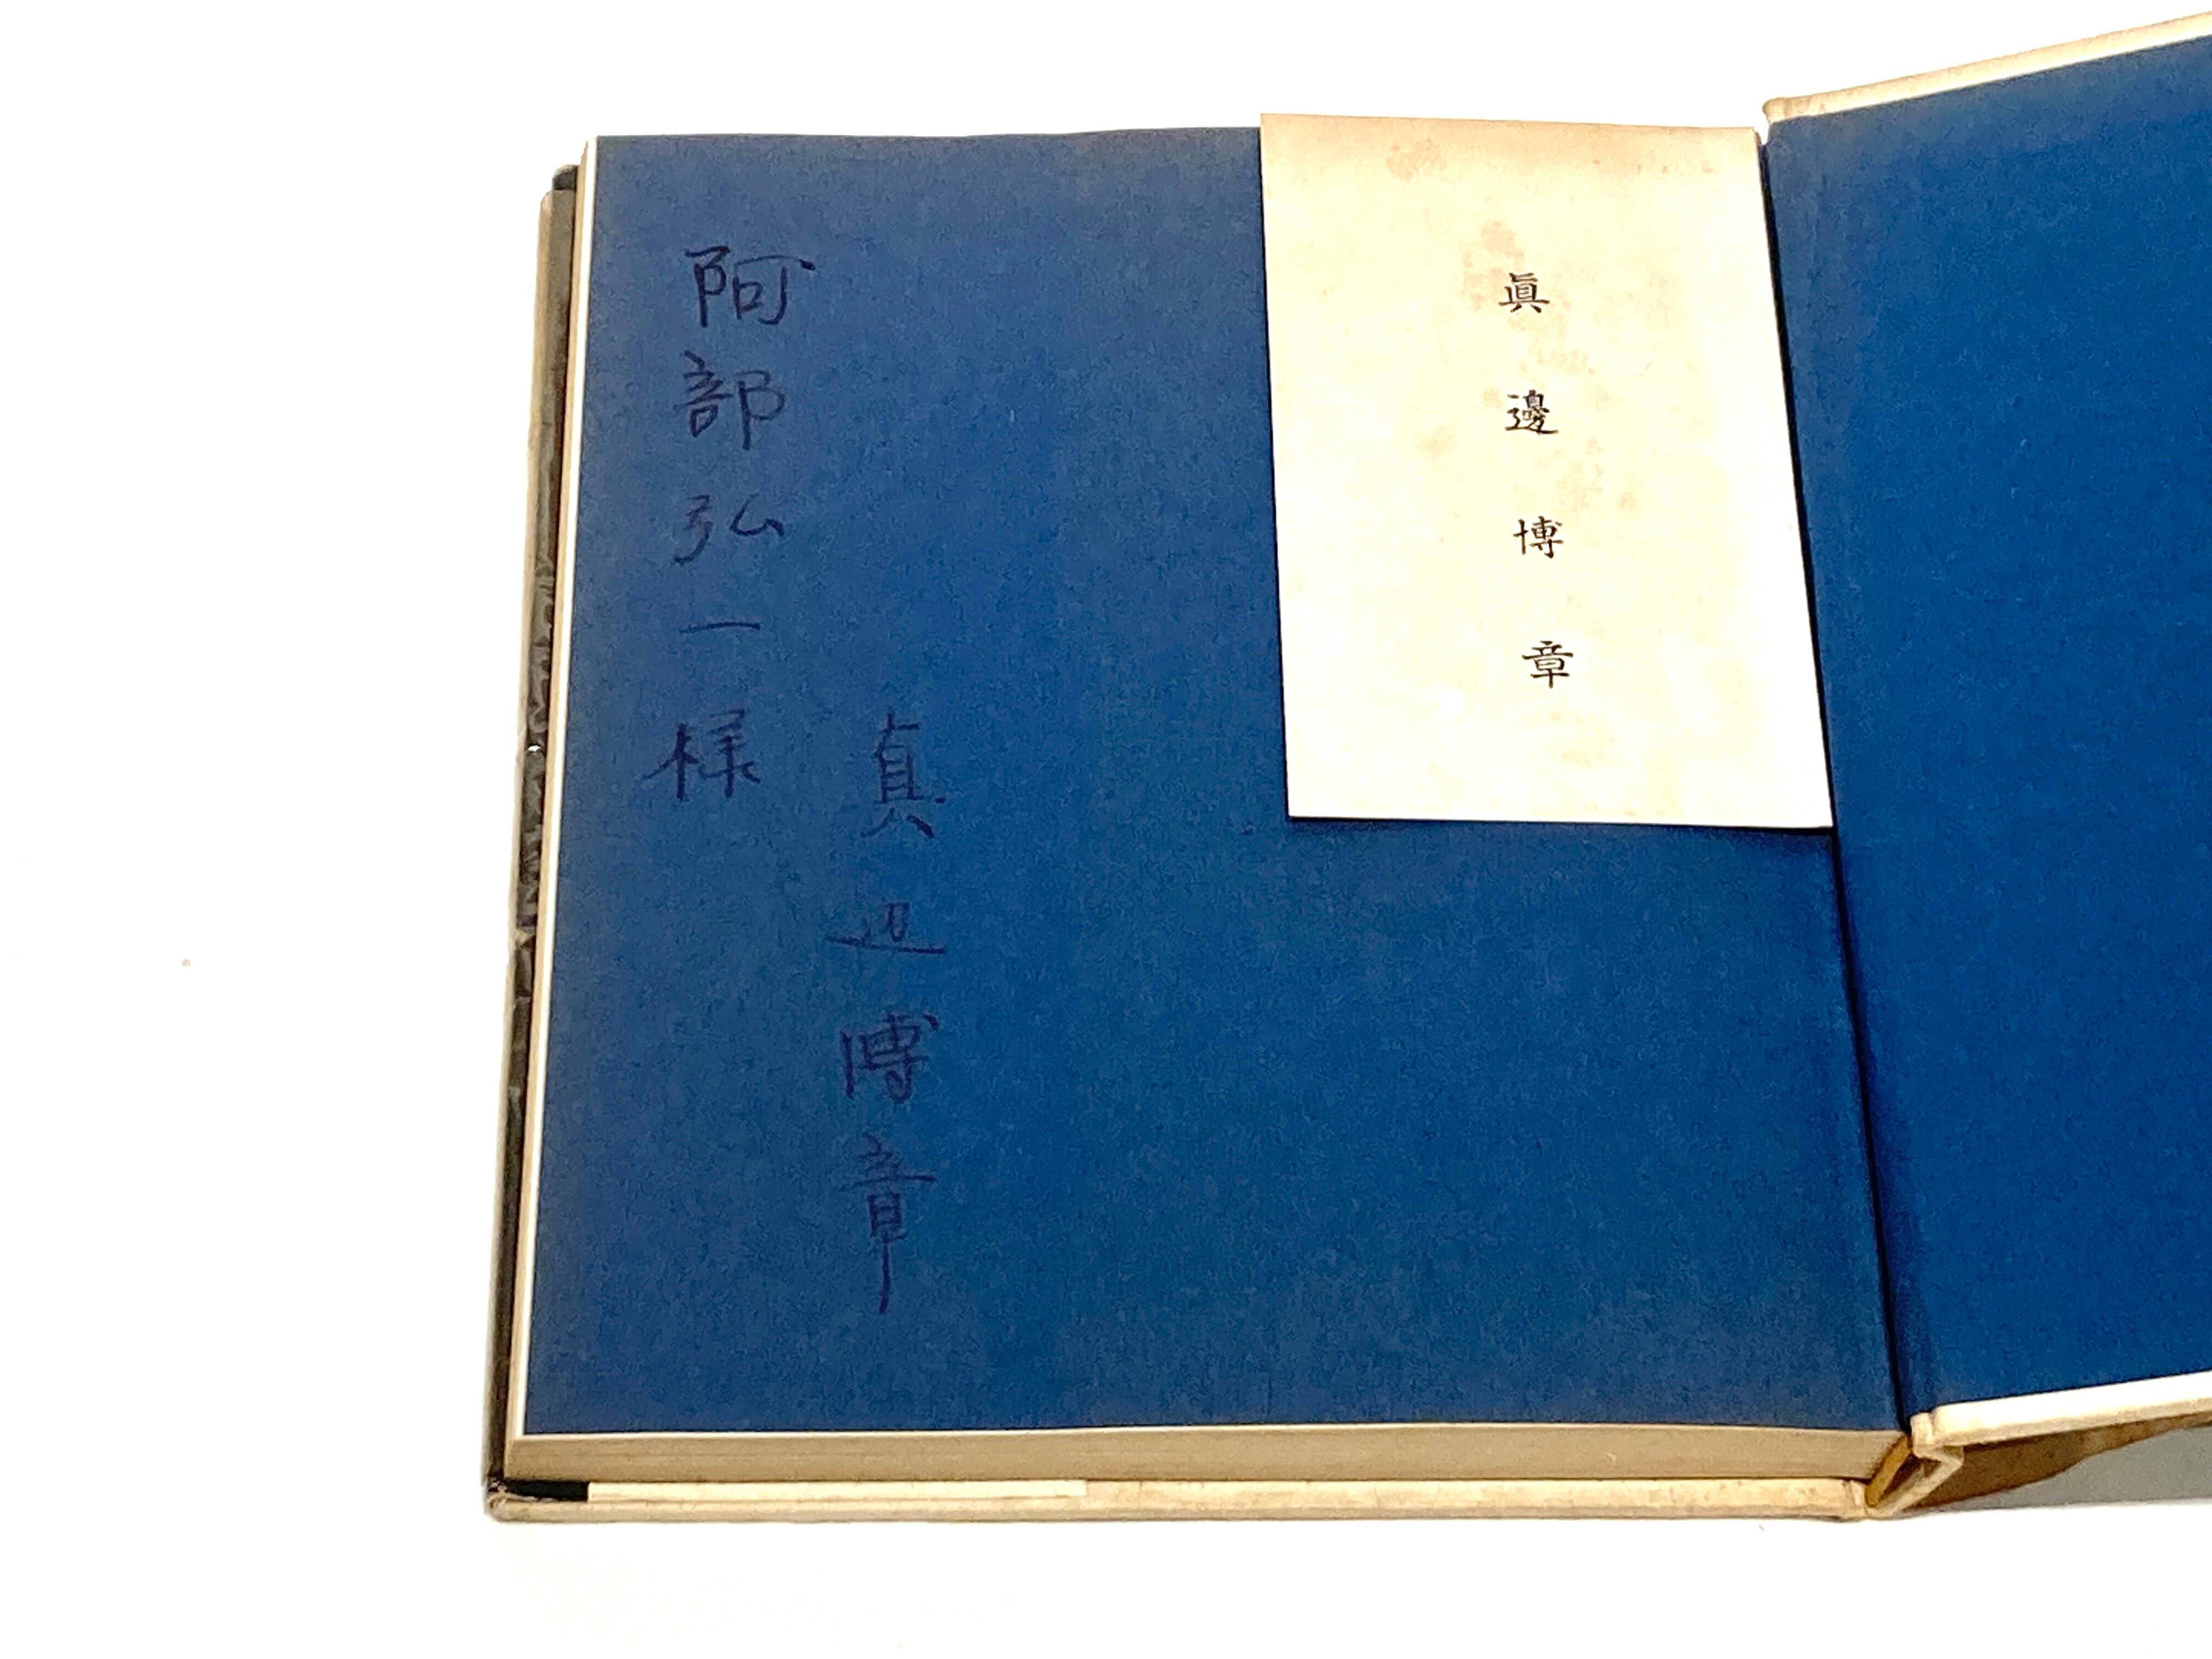 眞邊博章
阿部弘一様
真辺博章